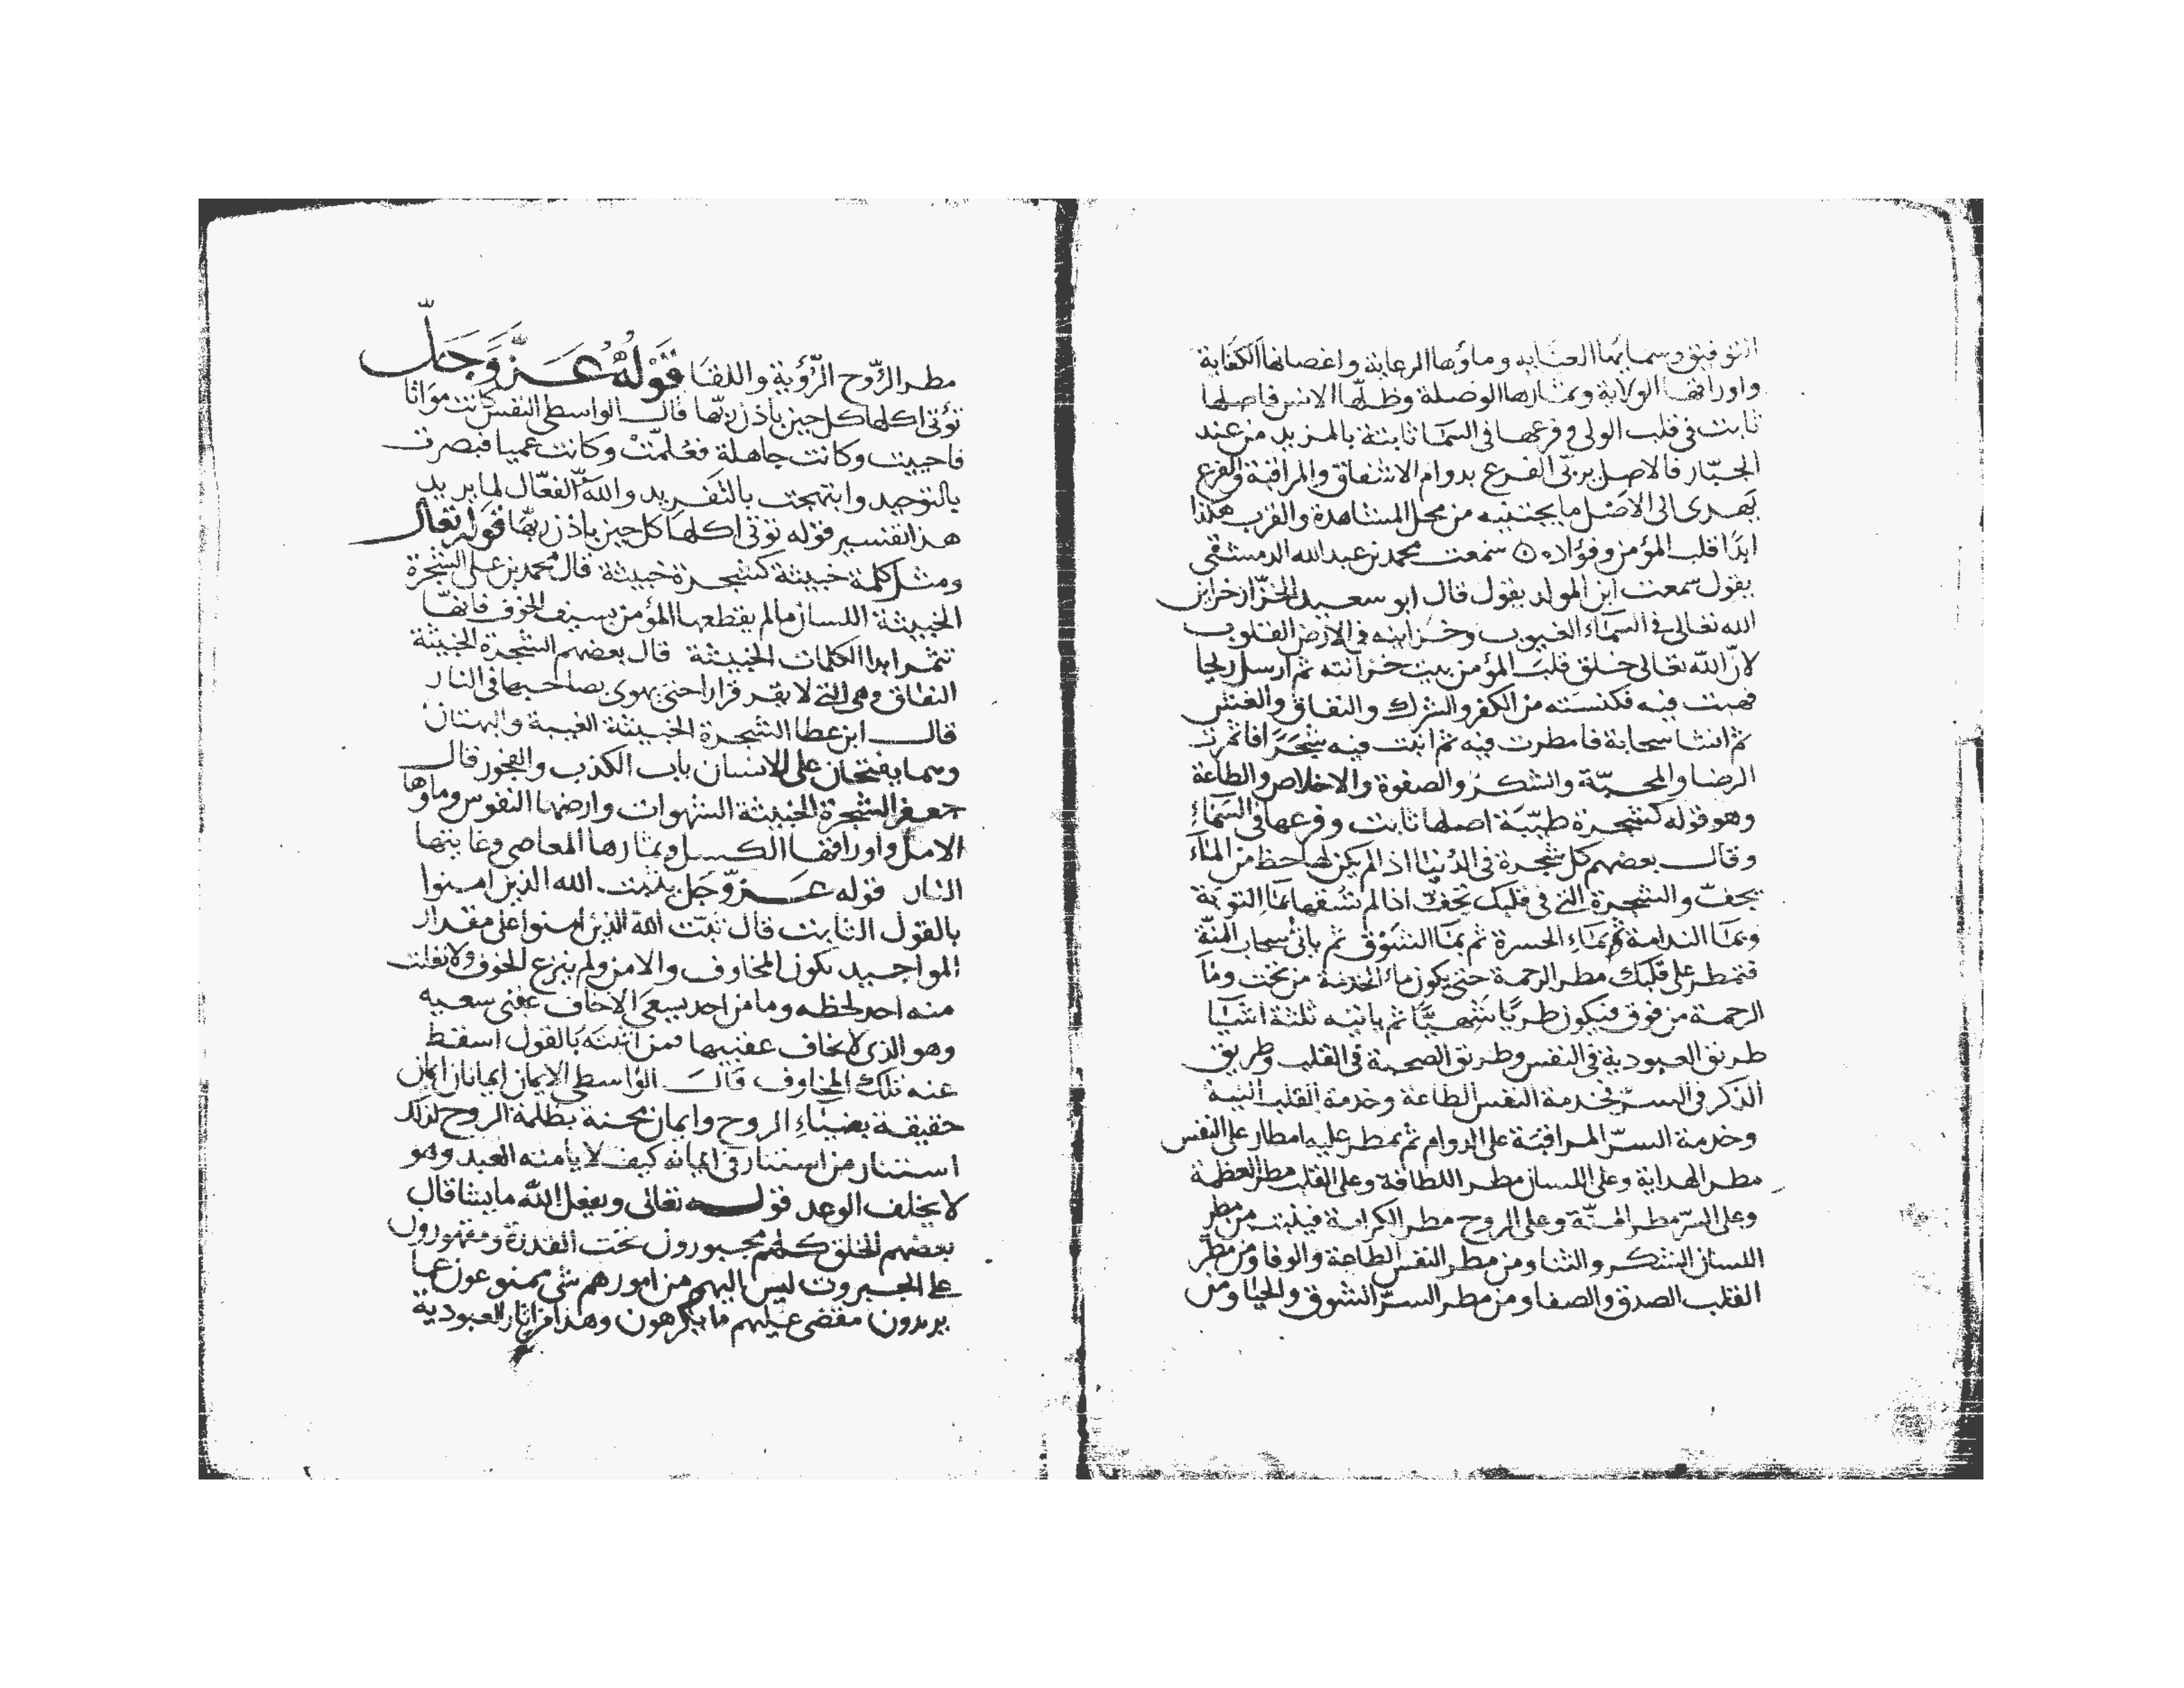 التوفيق وسماؤها العنايه وماؤها الرعاية واغصانها الكفاية
واوراقها الولاية وثمارها الوصلة وظلها الانس فاصلها
ثابت في قلب الولي وفرعها في السما ثابتة بالمزيد من عند
الجبّار فالاصل يربى الفرع بدوام الاشفاق والمراقبة والفرع
يهدى الى الاصل ما يجتنيه من محل المشاهدة والقرب هكذا
ابدًا قلب المؤمن وفؤاده ۞ سمعت محمد بن عبد الله الدمشقي
يقول سمعت ابن المولد يقول قال ابو سعيد الخزّاز خزاين
الله تعالى في السمآء الغيوب وخزاينه في الارض القلوب
لانّ الله تعالى خلق قلب المؤمن بيت خزانته ثم ارسل ريحا
فهبت فيه فكنسته من الكفر والشرك والنفاق والغش
ثم انشا سحابة فامطرت فيه ثم انبت فيه شجرًا فاثمرت
الرضا والمحبّة والشكر والصفوة والاخلاص والطاعة
وهو قوله كشجرة طيّبة اصلها ثابت وفرعها في السمآءِ
وقال بعضهم كل شجرة في الدنيا اذا لم يكن لها حظ من المآء
يجفّ والشجرة التي في قلبك تجفّ اذا لم تسقها بما التوبة
وبما الندامة ثم بماءِ الحسرة ثم بما الشوق ثم يأتي سحاب المنّة
فتمطر على قلبك مطر الرحمة حتى يكون ماء الخدمة من تحت وما
الرحمة من فوق فيكون طريًا شهيًّا ثم ياتيه ثلثة اشيا
طريق العبودية في النفس وطريق الصحبة في القلب وطريق
الذكر في السرّ فخدمة النفس الطاعة وخدمة القلب النية
وخدمة السرّ المراقبة على الدوام ثم يمطر عليه امطار على النفس
مطر الهداية وعلى اللسان مطر اللطافة وعلى القلب مطر العظمة
وعلى السرّ مطر المنّة وعلى الروح مطر الكرامة فينبت من مطر
اللسان الشكر والثنا ومن مطر النفس الطاعة والوفا ومن مطر
القلب الصدق والصفا ومن مطر السرّ الشوق والحيا ومن
مطر الرّوح الرّؤية واللقا قَوْلُهُ عَزَّ وَجَلَّ
تؤتى اكلها كل حين باذن ربّها قال الواسطى النفس كانت مَوَاتًا
فاحييت وكانت جاهلة فعُلمّتْ وكانت عميا فبصرت
بالتوحيد وابتهجت بالتفريد والله الفعّال لما يريد
هذا تفسير قوله تؤتى اكلها كل حين باذن ربّها قوله تعالى
ومثل كلمة خبيثة كشجرة خبيثة قال محمد بن على الشجرة
الخبيثة اللسان ما لم يقطعها المؤمن بسيف الخوف فانهّا
تثمر ابدا الكلمات الخبيثة قال بعضهم الشجرة الخبيثة
النفاق وهى التى لا يقر قرارا حتى يهوى بصاحبها في النار
قال ابن عطا الشجرة الخبيثة الغيبة والبهتان
وهما يفتحان على الانسان باب الكذب والفجور قال
جعفر الشجرة الخبيثة الشهوات وارضها النفوس وماوها
الامل واوراقها الكسل وثمارها المعاصى وغايتها
النار قوله عَزَّ وَجَل يثبت الله الذين امنوا
بالقول الثابت قال ثبّت الله الذين امنوا على مقدار
المواجيد يكون المخاوف والامن ولم ينزع الخوف ولا تفلت
منه احد لحظه وما من احد يسعى الا خاف عقبى سعيه
وهو الذي لا يخاف عقبيها فمن اثبته بالقول اسقط
عنه تلك المخاوف قال الواسطى الايمان ايمانان ايمان
حقيقة بضياءِ الروح وايمان محنة بظلمة الروح لذلك
استثنار من استثنار في ايمانه كيف لا يامنه العبد وهو
لا يخلف الوعد قوله تعالى ويفعل الله ما يشا قال
بعضهم الخلق كلهم مجبورون تحت القدرة ومقهورون
على الجبروت ليس اليهم من امورهم شى ممنوعون عما
يريدون مقضى عليهم ما يكرهون وهذا من اثار العبودية